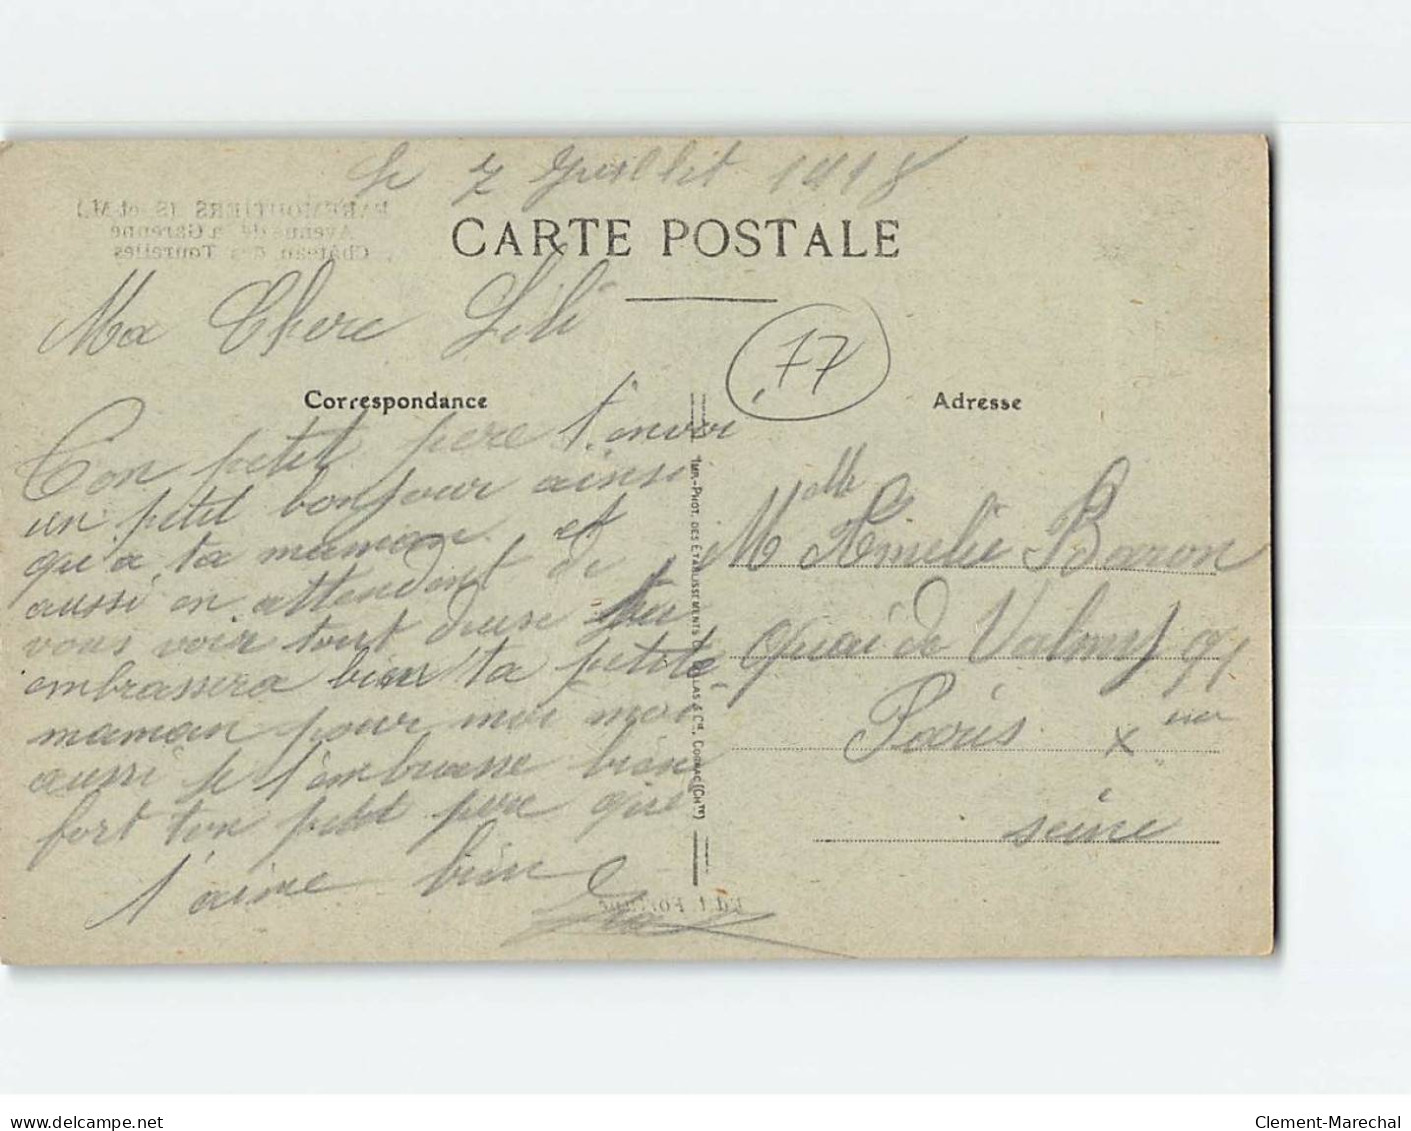 le 7 Juillet 1918
FAREMOUTIERS (S.-et-M.)
Avenue de la Garenne
Château des Tourelles
CARTE POSTALE
Ma Chere Lili
77
Correspondance
Adresse
Ton petit pere t'envoi
un petit bonjour ainsi
qu'a ta maman et
aussi en attendant de
vous voir tout deuse tu
embrassera bien ta petite
maman pour moi moi
aussi je t'embrasse bien
fort ton petit pere qui
t'aime bien
Melle Amelie Baron
quai de Valmy 91
Paris x
seine
IMP.-PHOT. DES ÉTABLISSEMENTS & Cie, COGNAC (Chte)
delcampe.net
Clement-Marechal